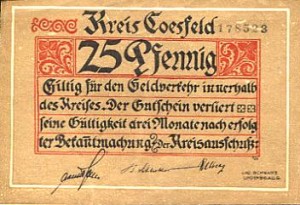 Kreis Coesfeld 178523
25 Pfennig
Giltig für den Geldverkehr innerhalb
des Kreises. Der Gutschein verliert
seine Gültigkeit drei Monate nach erfolg
ter Bekanntmachung. Der Kreisanschuß: